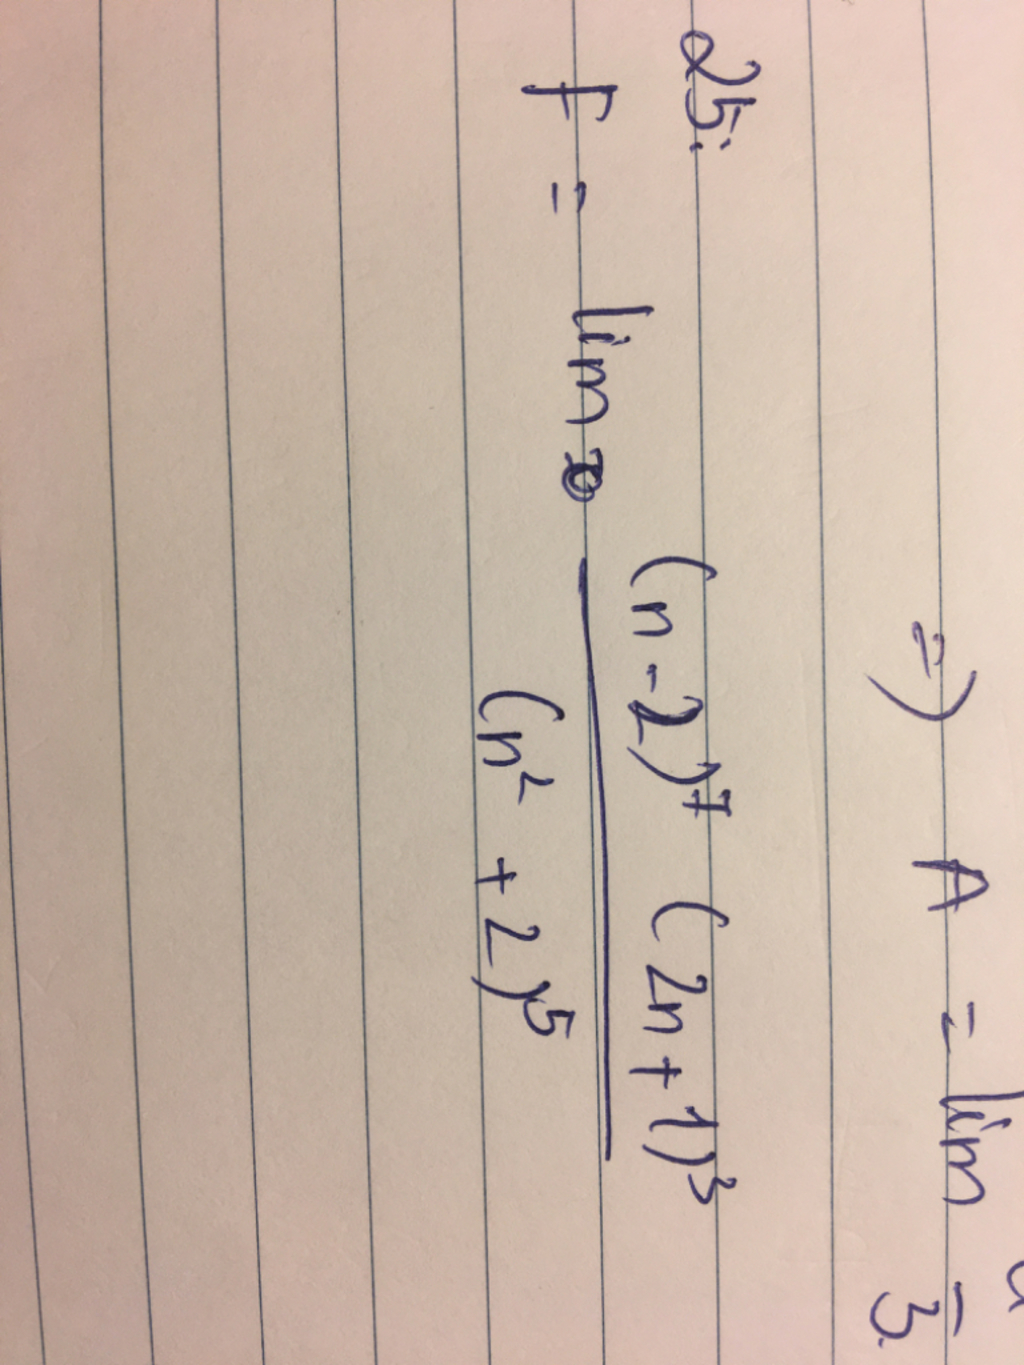 =) A = lim
3
25:
F = lim (n - 2)⁷ (2n + 1)³
(n² + 2)⁵